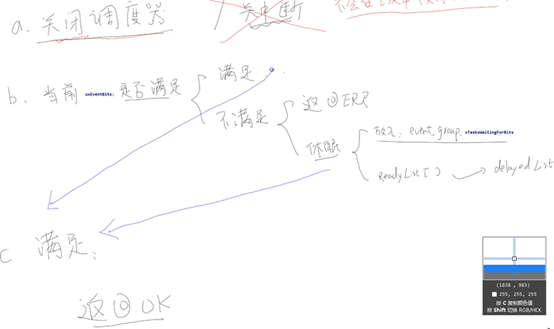 a. 关闭调度器 / 关中断
b. 当前 uxEventBits: 是否满足 { 满足
不满足 { 返回 ERR
休眠 { event_group. xTasksWaitingForBits
readyList[ ] → delayedList
c 满足:
返回 OK
(1838 , 983)
255, 255, 255
按 C 复制颜色值
按 Shift 切换 RGB/HEX